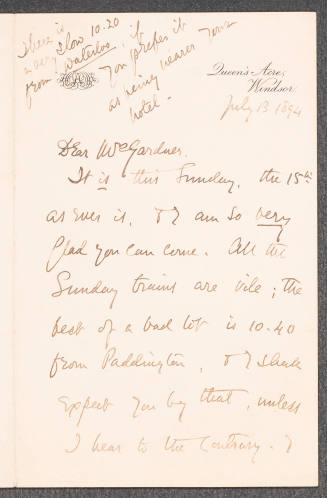 There is
a very slow 10.20
from Waterloo, if
you prefer it
as being nearer your
hotel -
Queen's Acre,
Windsor.
July 13 1894
Dear Mrs Gardner.
It is this Sunday, the 15th
as ever is, & I am so very
glad you can come. All the
Sunday trains are vile; the
best of a bad lot is 10.40
from Paddington, & I shall
expect you by that, unless
I hear to the contrary. I